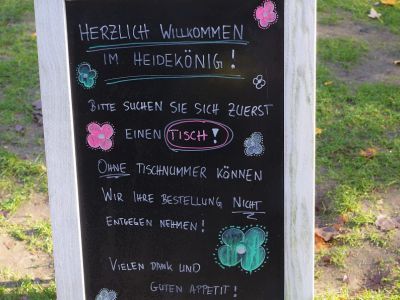 HERZLICH WILLKOMMEN
IM HEIDEKÖNIG!
BITTE SUCHEN SIE SICH ZUERST
EINEN TISCH!
OHNE TISCHNUMMER KÖNNEN
WIR IHRE BESTELLUNG NICHT
ENTGEGEN NEHMEN!
VIELEN DANK UND
GUTEN APPETIT!